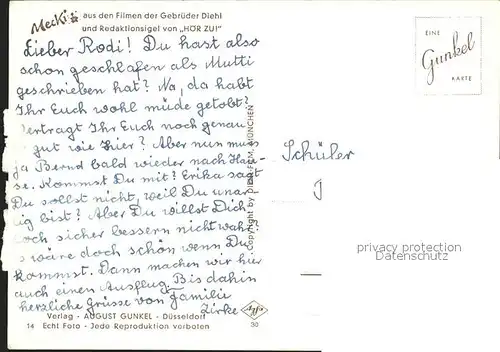 Mecki aus den Filmen der Gebrüder Diehl
und Redaktionsigel von „HÖR ZU!"
Lieber Rodi! Du hast also
schon geschlafen als Mutti
geschrieben hat? Na, da habt
Ihr Euch wohl müde getobt?
Vertragt Ihr Euch noch genau
gut wie hier? Aber nun muss
ja Bernd bald wieder nach Hau-
se. Kommst Du mit? Erika sagt
Du sollst nicht, weil Du unar-
tig bist? Aber Du willst Dich
doch sicher bessern nicht wahr?
s wäre doch schön wenn Du
kommst. Dann machen wir hier
auch einen Ausflug. Bis dahin
herzliche Grüsse von Familie
Zirke
Verlag · AUGUST GUNKEL · Düsseldorf
14 Echt Foto - Jede Reproduktion verboten
Agfa
30
Copyright by DIEHL-FILM, MÜNCHEN
EINE
Gunkel
KARTE
Schüler
privacy protection
Datenschutz